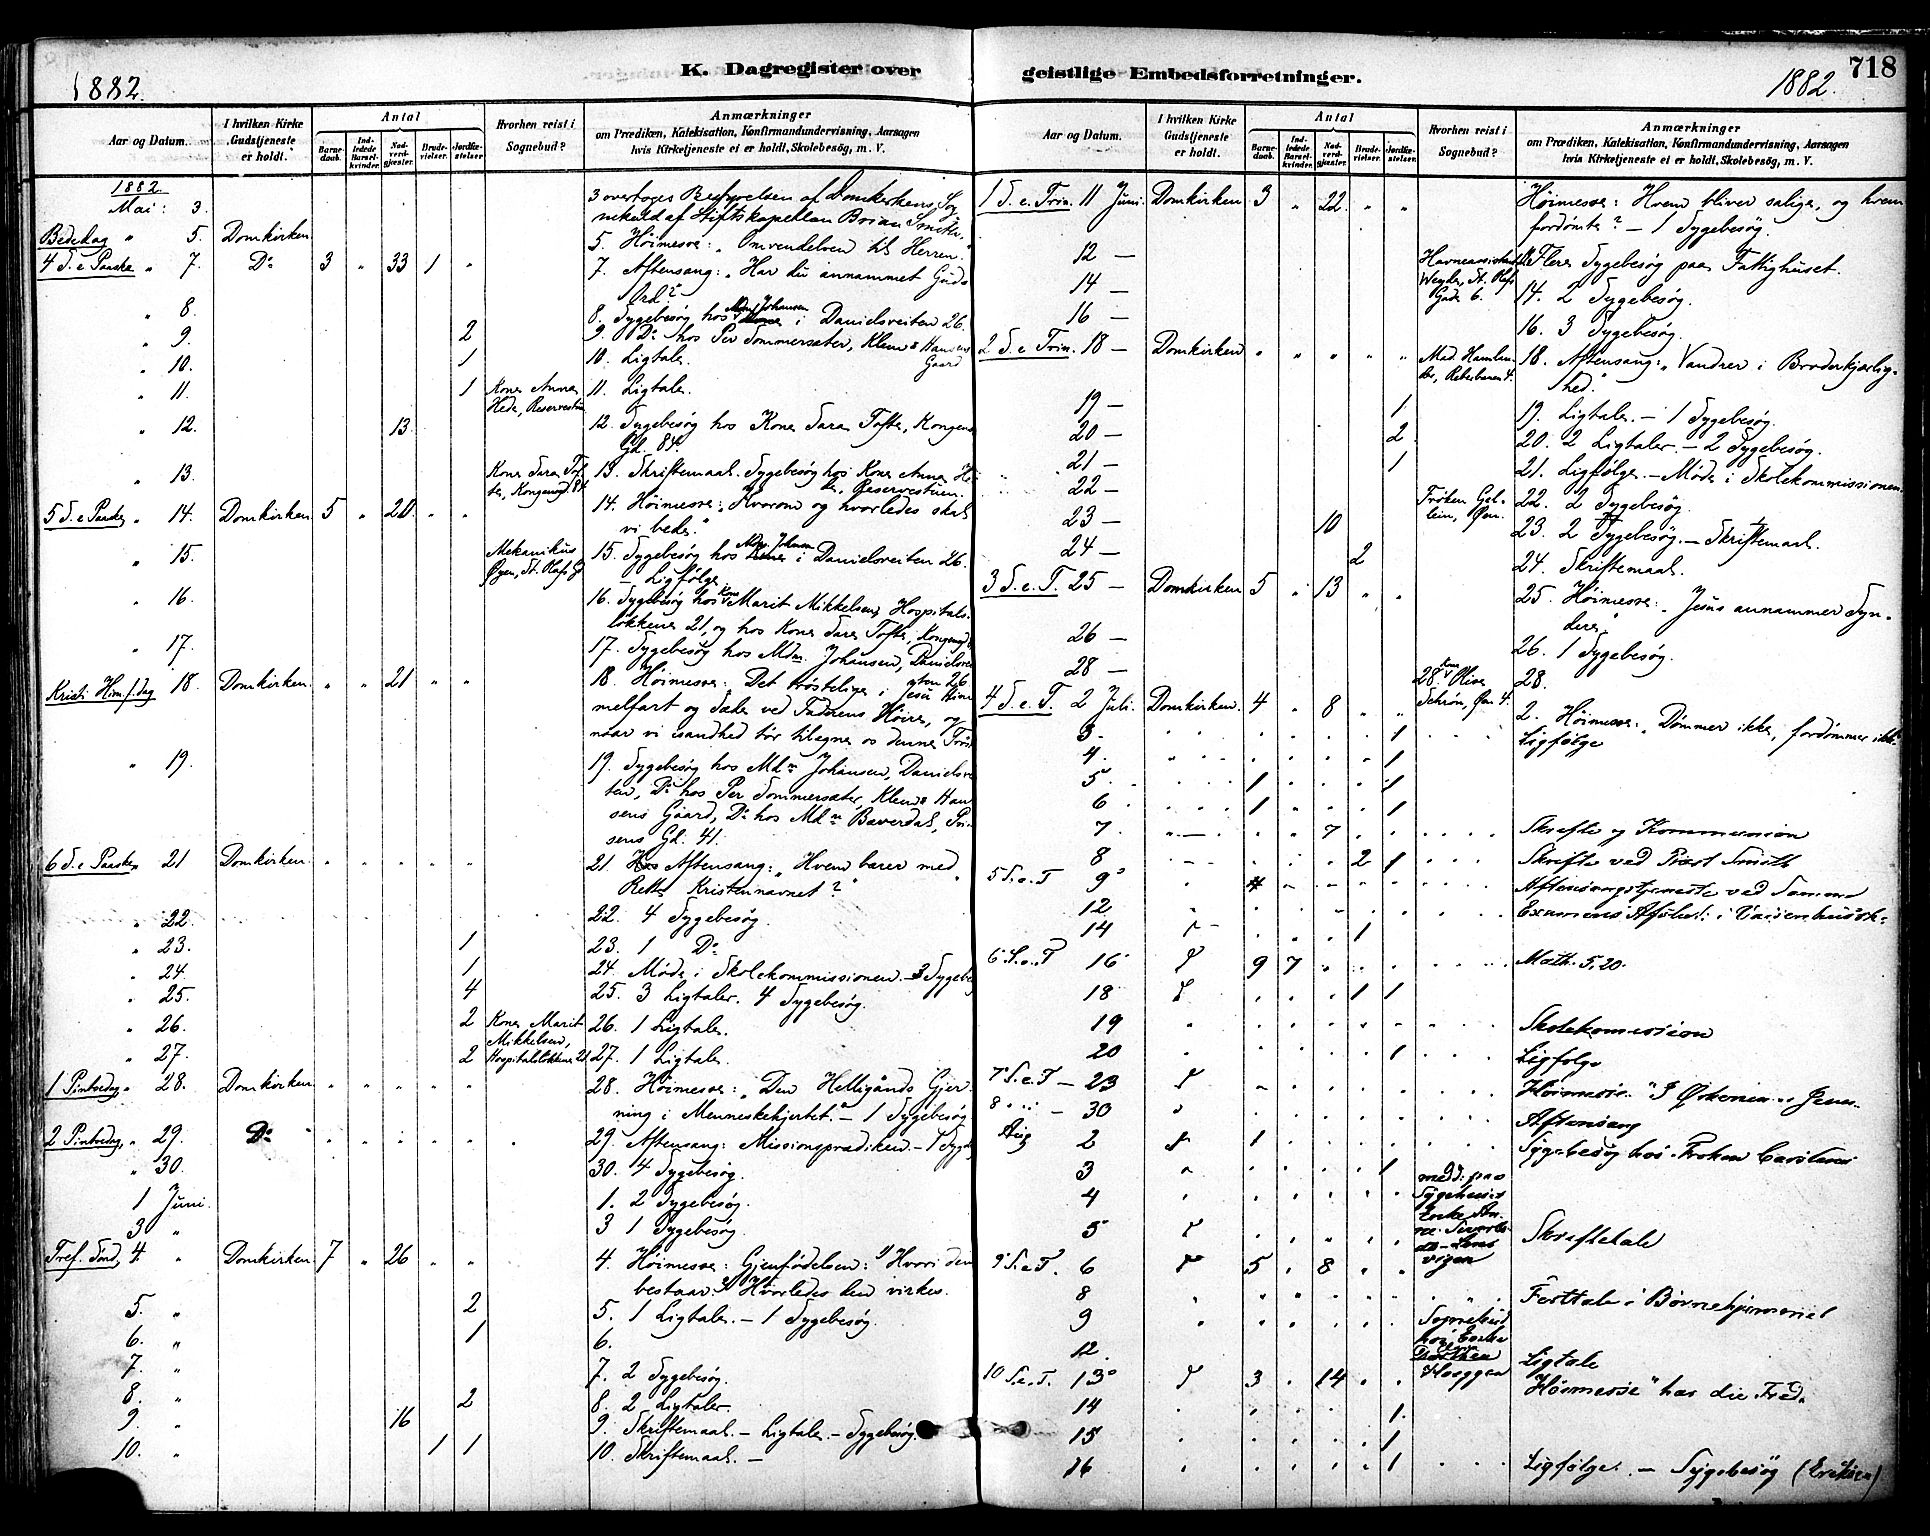 1882.
K. Dagregister over geistlige Embedsforretninger.
1882. 718
Aar og Datum.
I hvilken Kirke Gudstjeneste er holdt.
Antal
Barnedaab.
Indledede Barselkvinder.
Nadverdgjester.
Brudevielser.
Jordfæstelser.
Hvorhen reist i Sognebud?
Anmærkninger
om Prædiken, Katekisation, Konfirmandundervisning, Aarsagen
hvis Kirketjeneste ei er holdt, Skolebesøg, m. V.
1882.
Mai: 3. 3 overtoges Bestyrelsen af Domkirkens Sog
nekald af Stiftskapellan Brian Smith.
Bededag " 5. Domkirken 5. Høimesse: "Omvendelsen til Herren."
4 S. e Paaske " 7. Do 3 " 33 1 " 7. Aftensang: "Har du annammet Guds
Ord?"
" 8. 8. Sygebesøg hos Mdm Johansen i Danielsveiten 26.
" 9. 2 9. Do hos Per Sommersæter, Klem Hansens
Gaard
" 10. 1 10. Ligtale.
" 11. 1 Kone Anna 11. Ligtale.
Hede, Reservestuen
" 12. 13. 12. Sygebesøg hos Kone Sara Tofte, Kongens
Gd. 84.
" 13. Kone Sara Tof 13. Skriftemaal. Sygebesøg hos Kone Anna He
te, Kongensgd. 84 de, Reservestuen.
5 S. e Paaske " 14. Domkirken 5 " 20 " " 14. Høimesse: "Hvorom og hvorledes skal
vi bede."
" 15. Mekanikus 15. Sygebesøg hos Mdm. Johansen i Danielsveiten 26.
Øyen, St. Olafs Gd Ligfølge
" 16. 16. Sygebesøg hos Kone Marit Mikkelsen, Hospitals
løkkene 21, og hos Kone Sara Tofte, Kongensgd
" 17. 17. Sygebesøg hos Mdm. Johansen, Danielsvei
ten 26
Kristi Him.f.dag 18. Domkirken " " 21 " " 18. Høimesse: Det trøstelige i Jesu Him
melfart og Sæde ved Faderens Høire, og
naar vi i sandhed tør tilegne os denne Trøst
" 19. 19. Sygebesøg hos Mdm Johansen, Danielsvei
ten, Do hos Per Sommersæter, Klem Han
sens Gaard, Do hos Mdm Bæverdal, Prin
sens Gd. 41.
6 S. e Paaske " 21 Domkirken " " " " " 21. Aftensang: "Hvem bærer med
Rette Kristennavnet?"
" 22. 22. 4 Sygebesøg.
" 23. 1 23. 1 Do
" 24. 1 24. Møde i Skolekommissionen. - 3 Sygebe
" 25. 4 25. 3 Ligtaler. 4 Sygebesøg.
" 26. 2 Kone Marit 26. 1 Ligtale.
Mikkelsen,
" 27. 2 Hospitalsløkkene 21 27. 1 Ligtale.
1 Pintsedag " 28. Domkirken " " " " " 28. Høimesse: "Den Helligånds Gjer
ning i Menneskehjertet." - 1 Sygebesøg
2 Pintsedag " 29. Do " " " " " 29. Aftensang: Missionsprædiken. - 1 Syge
" 30. 30. 4 Sygebesøg.
1 Juni. 1. 2 Sygebesøg.
3 " 3 1 Sygebesøg.
Tref. Sønd. 4. " Domkirken 7 " 26 " " 4. Høimesse: Gjenfødelsen: 1) Hvori den
bestaar. 2) Hvorledes den virkes.
5. " 2 5. 1 Ligtale. - 1 Sygebesøg.
6. " 1 6.
7. " 7. 2 Sygebesøg.
8. " 2 8. 2 Ligtaler.
9. " 16 9. Skriftemaal. - Ligtale. - Sygebesøg.
10. " 1 1 10. Skriftemaal. -
Aar og Datum.
I hvilken Kirke Gudstjeneste er holdt.
Antal
Barnedaab.
Indledede Barselkvinder.
Nadverdgjester.
Brudevielser.
Jordfæstelser.
Hvorhen reist i Sognebud?
Anmærkninger
om Prædiken, Katekisation, Konfirmandundervisning, Aarsagen
hvis Kirketjeneste ei er holdt, Skolebesøg, m. V.
1 S. e. Trin. 11 Juni. Domkirken 3 " 22 " " Høimesse: Hvem bliver salige, og hvem
fordømte? - 1 Sygebesøg.
12 - 12. Flere Sygebesøg paa Fattighuset.
14 - St. Olafs Gade 6. 14. 2 Sygebesøg.
16 - 16. 3 Sygebesøg.
2 S. e Trin. 18 - Domkirken " " " " " Reberbanen 4. 18. Aftensang: "Vandrer i Broderkjærlig-
hed."
19 - 1 19. Ligtale. - 1 Sygebesøg.
20 - 2 20. 2 Ligtaler. - 2 Sygebesøg.
21 - 1 21. Ligfølge. - Møde i Skolekommissionen.
22 - Frøken 22. 2 Sygebesøg.
23 - 10 23. 2 Sygebesøg. - Skriftemaal.
24 - 2 24. Skriftemaal.
3 S. e. T. 25 - Domkirken 5 " 13 " " 25. Høimesse: "Jesus annammer Syn-
dere"
26 - 26. 1 Sygebesøg.
28 - 28. Kone Oline 28.
4 S. e. T. 2 Juli. Domkirken. 4 " 8 " " 2. Høimesse: "Dømmer ikke, fordømmer ikke"
3. 1 Ligfølge
4. 1
5. 1 1
6. 1 1
7. 7 Skrifte og Kommunion
8 2 1 Skrifte ved Præst Smith
5 S. e. T 9 4 Aftensangstjeneste ved Samme
12 Examens Afslut: i Vaisenhussk.
14 1
6 S. e. T 16 9 7 Math. 5,20.
18 1 1
19 Skolekomission
20 1 Ligfølge
7 S. e. T - 23 Høimesse.
8 - 30 Aftensang
Aug 2 1 Sygebesøg hos Frøken
3 1
4
5 Skriftetale
9 S. e T. 6 5 " 8 " "
8 Festtale i Børnehjemmet
9
12. Ligtale
10 S. e. T. 13 3 14 Høimesse "har du Fred"
14 1.
15 1
16 1 Ligfølge. - Sygebesøg